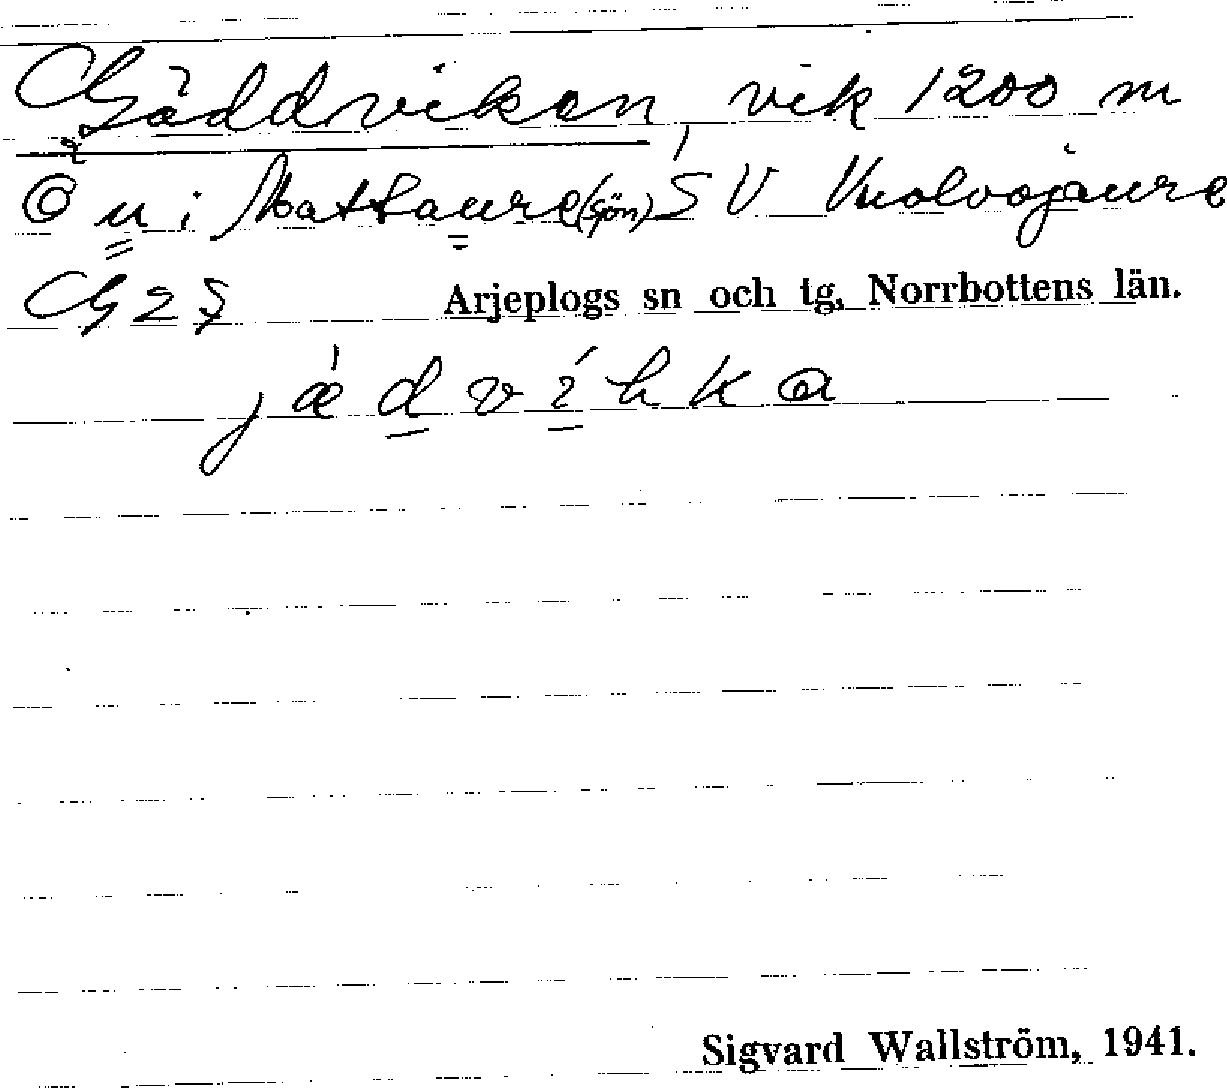 Gäddviken, vik 1200 m
i Mattaure (sjön) S V Vuolvojaure
Arjeplogs sn och tg, Norrbottens län.
j æ d v í h k a
Sigvard Wallström, 1941.